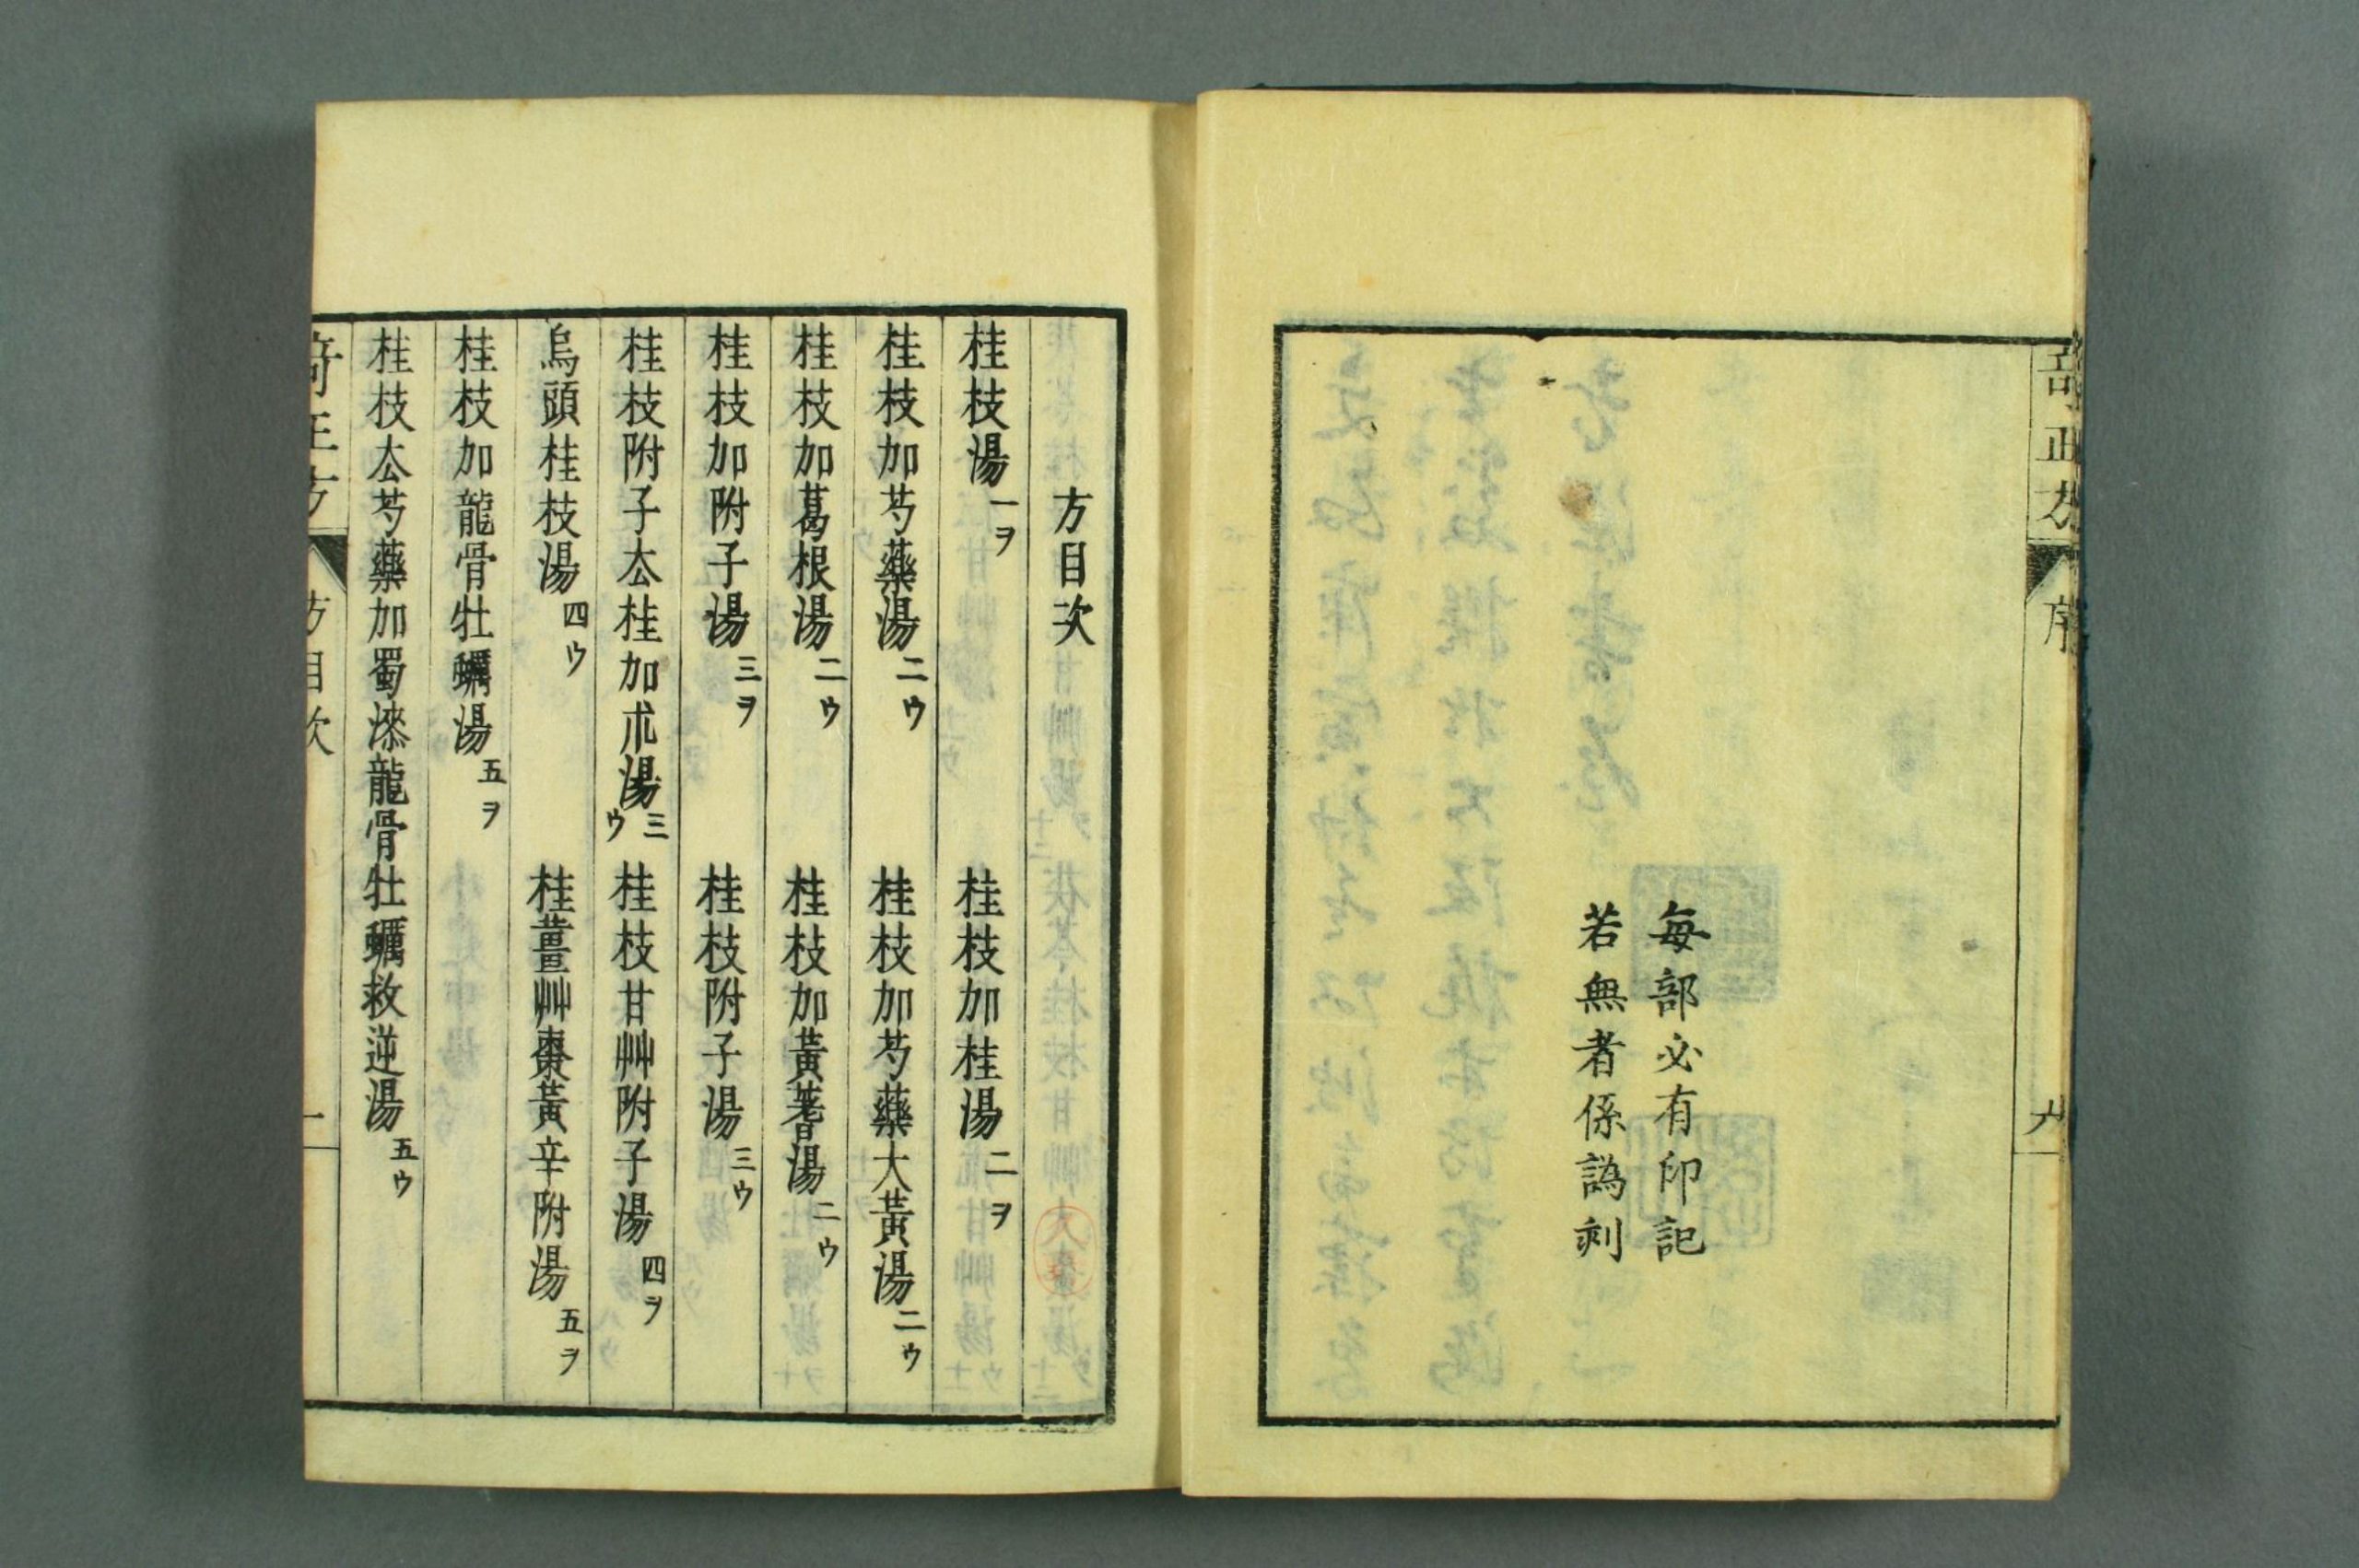 毎部必有印記
若無者係譌刻
方目次
桂枝湯 一ヲ 桂枝加桂湯 二ヲ
桂枝加芍藥湯 二ウ 桂枝加芍藥大黃湯 二ウ
桂枝加葛根湯 二ウ 桂枝加黃耆湯 二ウ
桂枝加附子湯 三ヲ 桂枝附子湯 三ウ
桂枝附子厺桂加朮湯 三ウ 桂枝甘艸附子湯 四ヲ
烏頭桂枝湯 四ウ 桂薑艸棗黃辛附湯 五ヲ
桂枝加龍骨牡蠣湯 五ヲ
桂枝厺芍藥加蜀漆龍骨牡蠣救逆湯 五ウ
方目次